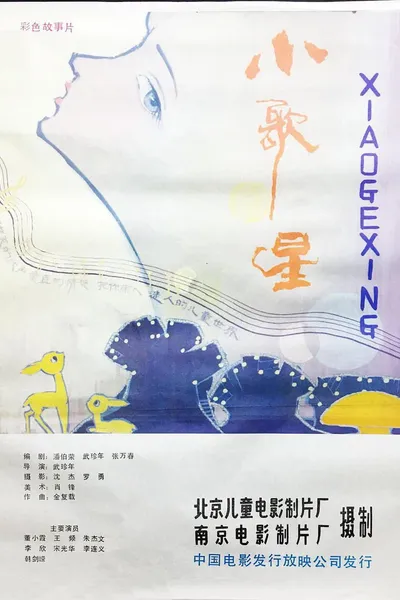 彩色故事片
小歌星
XIAOGEXING
迷人的儿童世界
编 剧：潘伯荣 武珍年 张万春
导 演：武珍年
摄 影：沈 杰 罗 勇
美 术：肖 锋
作 曲：金复载
主要演员
董小霞 王 频 朱杰文
李 欣 宋光华 李连义
韩剑琼
北京儿童电影制片厂
南京电影制片厂
摄制
中国电影发行放映公司发行